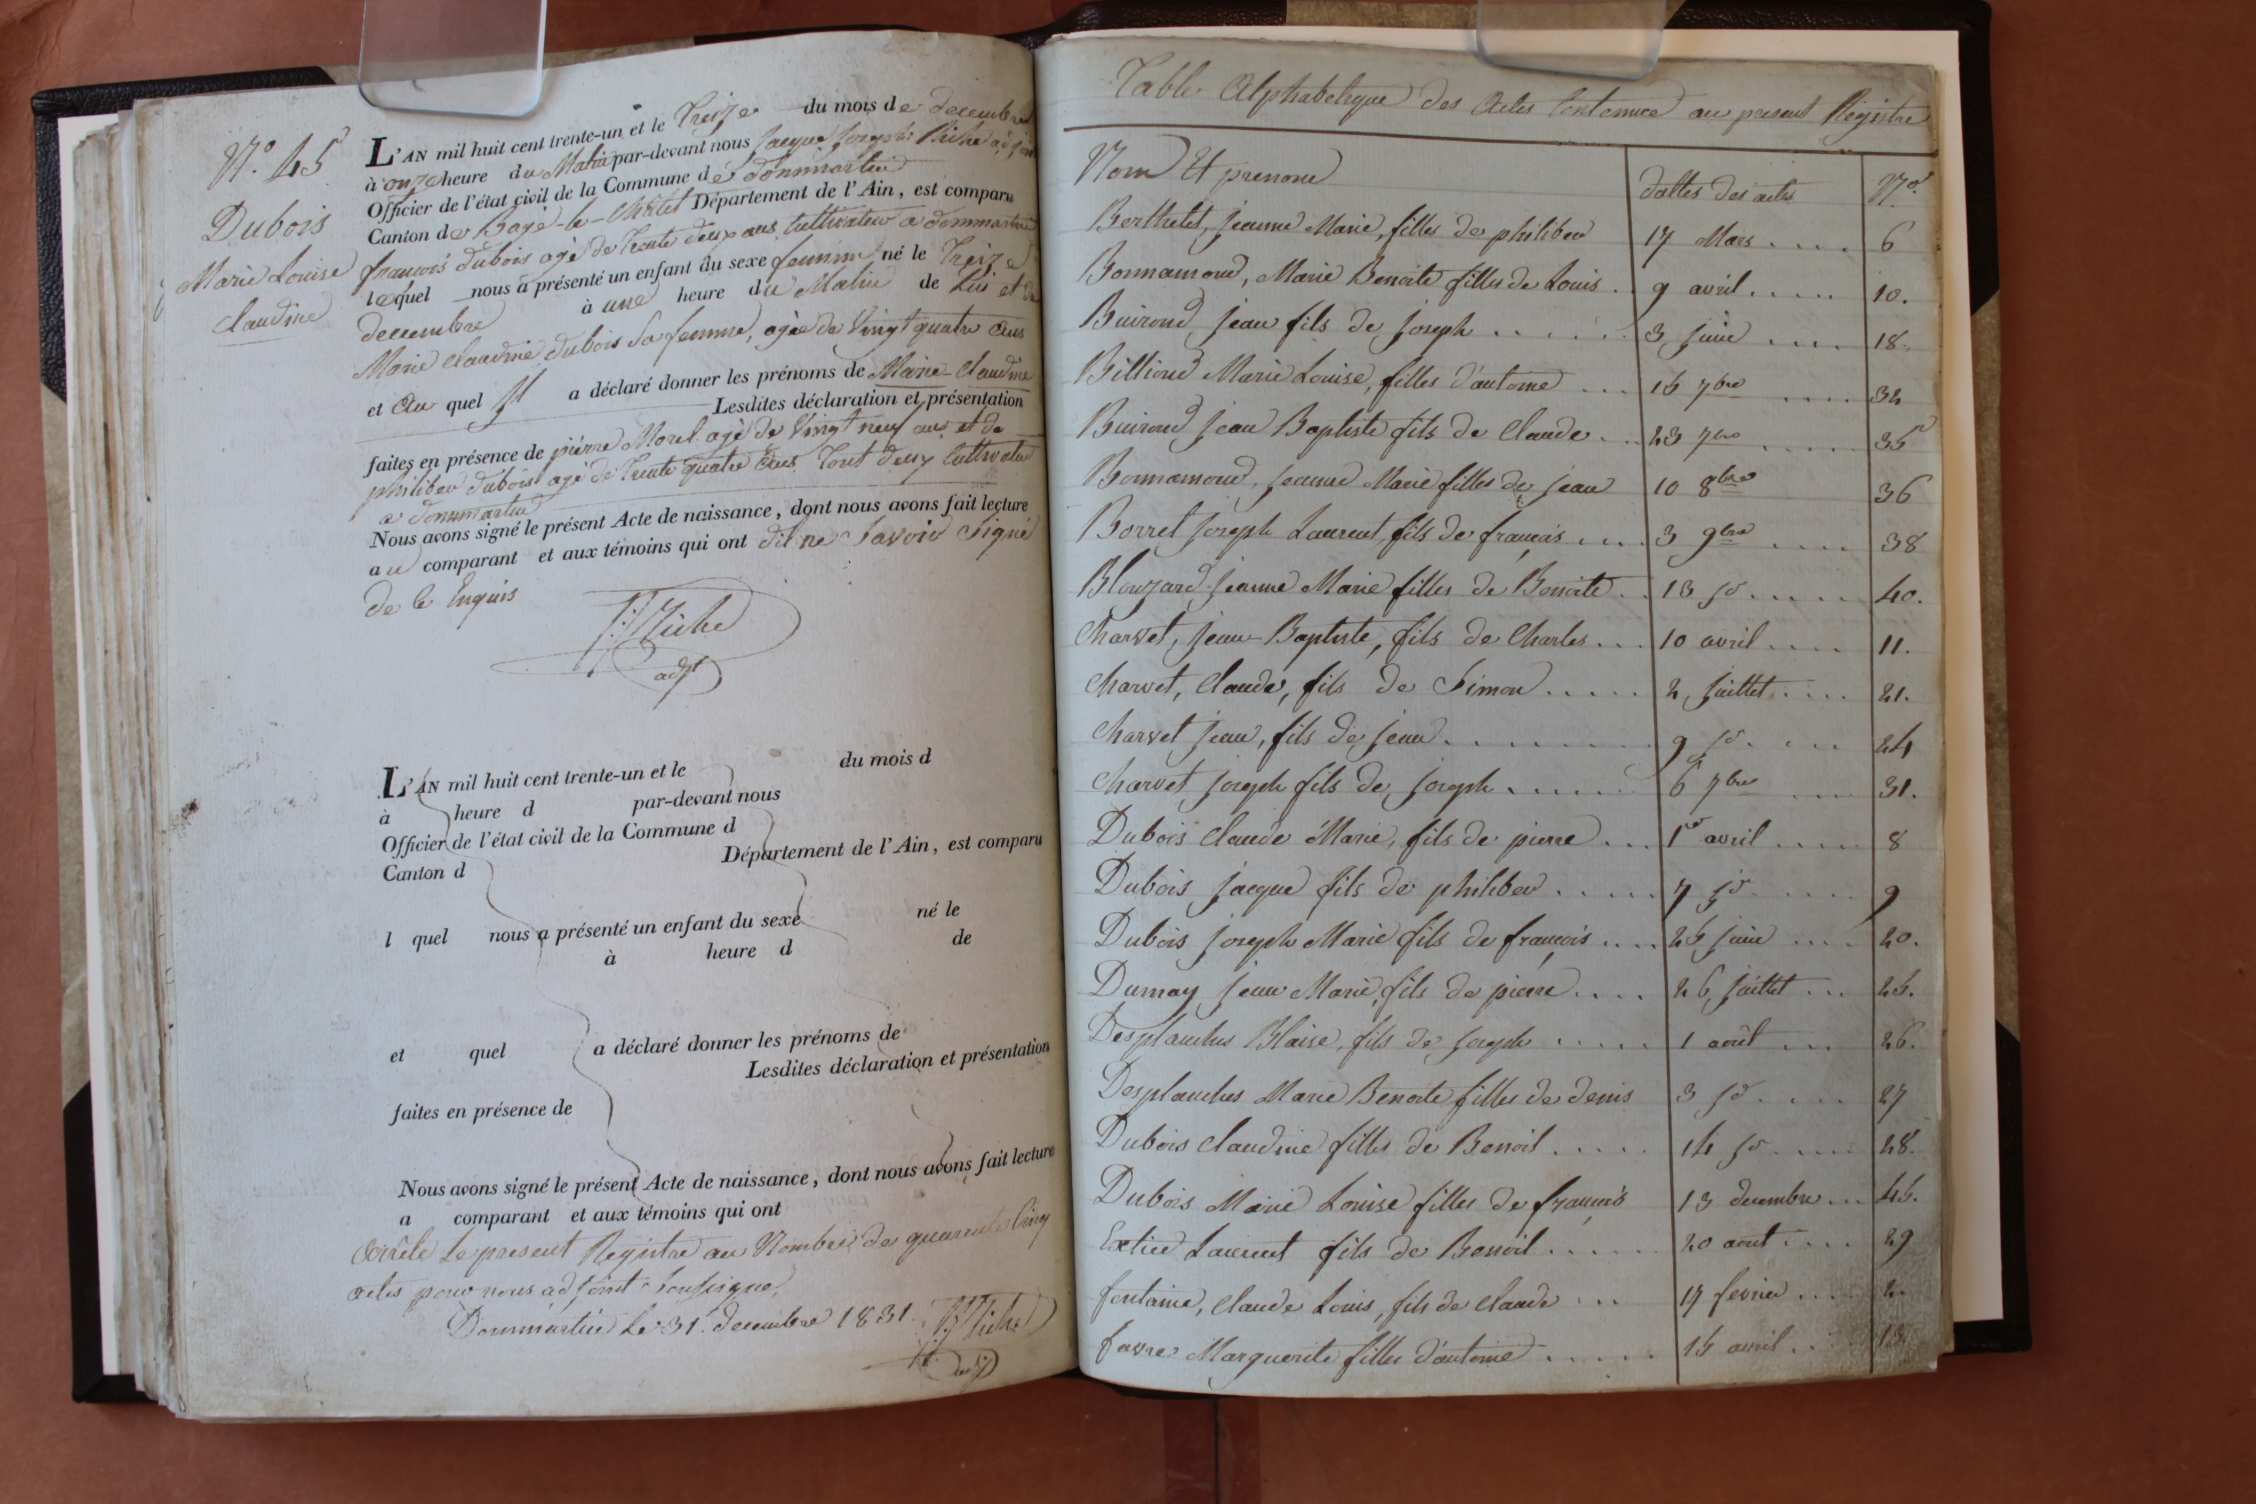 N.º 45
Dubois
Marie Louise
Claudine
L'AN mil huit cent trente-un et le Treize du mois de decembre
à onze heure du Matin par-devant nous Jacque Joseph Piche adjoint
Officier de l'état civil de la Commune de dommartin
Canton de Bagé-le-Châtel Département de l'Ain, est comparu
francois dubois agé de trente deux ans Cultivateur a dommartin
lequel nous a présenté un enfant du sexe feminin né le Treize
decembre à une heure du Matin de Lui et de
Marie Claudine dubois Sa femme, agée de Vingt quatre ans
et au quel il a déclaré donner les prénoms de Marie Claudine
Lesdites déclaration et présentation
faites en présence de pierre Morel agé de Vingt neuf ans et de
philiber dubois agé de trente quatre ans Tout deux Cultivateur
a dommartin
Nous avons signé le présent Acte de naissance, dont nous avons fait lecture
au comparant et aux témoins qui ont dit ne Savoir Signé
de ce Enquis
adjt
L'AN mil huit cent trente-un et le du mois d
à heure d par-devant nous
Officier de l'état civil de la Commune d
Canton d Département de l'Ain, est comparu
l quel nous a présenté un enfant du sexe né le
à heure d de
et quel a déclaré donner les prénoms de
Lesdites déclaration et présentation
faites en présence de
Nous avons signé le présent Acte de naissance, dont nous avons fait lecture
a comparant et aux témoins qui ont
Le present Registre au Nombre de quarente Cinq
actes pour nous adjoint Soussigne,
Dommartin Le 31 decembre 1831.
Table Alphabetique des Actes Contenuee au present Régistre
Nom Et prenom dattes des actes Nº.
Berthelet, jeanne Marie, filles de philiber 17 Mars .... 6
Bonnamoud, Marie Benoite filles de Louis .. 9 avril ..... 10.
Buiroud jean fils de joseph ...... 3 juin .... 18.
Billioud Marie Louise, filles d'antoine ... 15 7bre .... 32
Buiroud jean Baptiste fils de Claude ... 23 7bre ..... 35
Bonnamoud, jeanne Marie filles de jean 10 8bre 36
Borret joseph Laurent, fils de francois .... 3 9bre .... 38
Blouzard jeanne Marie filles de Benoite .. 13 jd ..... 40.
Charvet, jean-Baptiste, fils de Charles ... 10 avril .... 11.
Charvet, Claude, fils de Simon ..... 2 juillet .... 21.
Charvet jean, fils de jean ......... 9 jd .... 24
Charvet joseph fils de joseph ...... 6 7bre .... 31.
Dubois Claude Marie, fils de pierre ... 1er avril ..... 8
Dubois jacque fils de philiber ..... 7 jd ..... 9
Dubois joseph Marie fils de francois .... 25 juin .... 20.
Dumay jean Marie, fils de pierre .... 26 juillet ... 25.
Desplanches Blaise, fils de joseph ..... 1 août ... 26.
Desplanches Marie Benoite filles de denis 3 jd .... 27
Dubois Claudine filles de Benoit ..... 14 jd .... 28.
Dubois Marie Louise filles de francois 13 decembre ... 45.
Extier Laurent fils de Benoit ...... 20 aout .... 29
fontaine, Claude Louis, fils de Claude ... 17 fevrier .... 2.
favre Marguerite filles d'antoine ..... 15 avril ... 13.